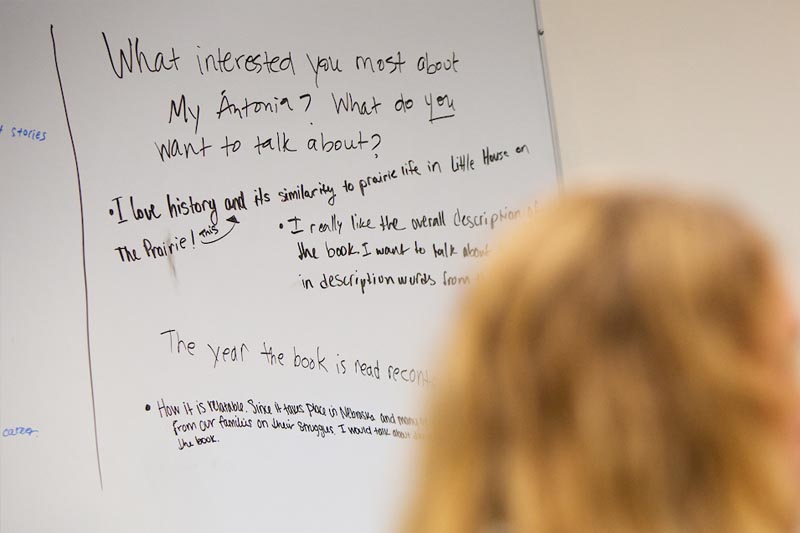 stories
career
What interested you most about
My Ántonia? What do you
want to talk about?
• I love history and its similarity to prairie life in Little House on
The Prairie! This
• I really like the overall description
the book. I want to talk about
in description words from
The year the book is read
• How it is relatable. Since it takes place in Nebraska and many
from our families on their struggles. I would talk about
the book.